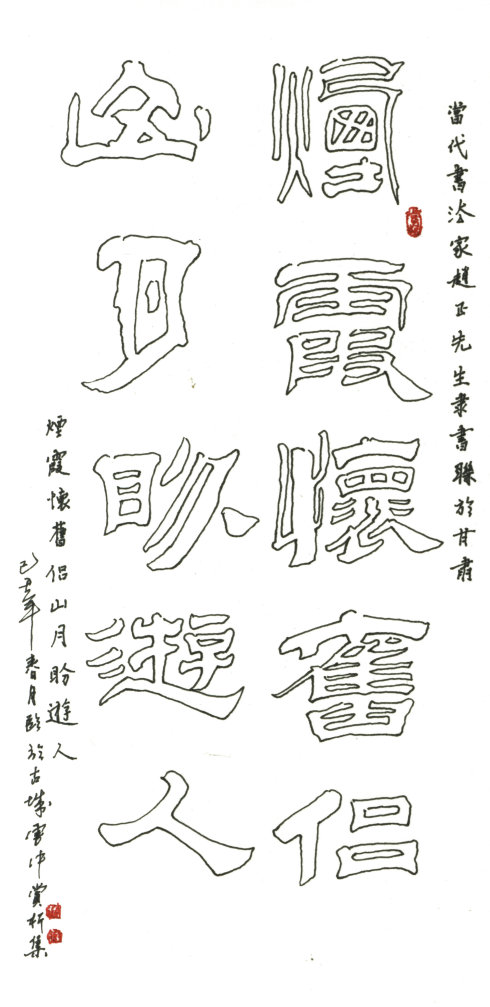 當代書法家趙正先生隶書聯於甘肅
煙霞懷舊侶
山月盼遊人
煙霞懷舊侶山月盼遊人
己丑年春月臨於古城雲中賞析集